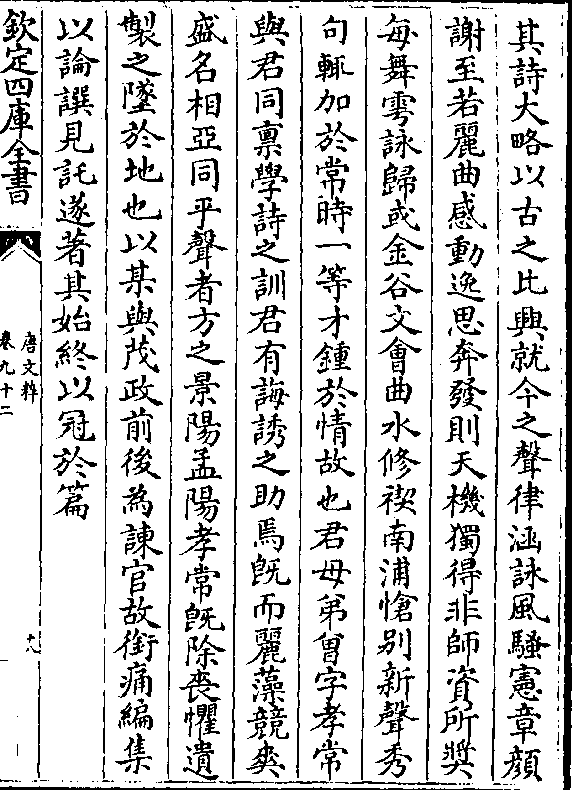 其詩大略以古之比興就今之聲律涵詠風騷憲章顔
謝至若麗曲感動逸思奔發則天機獨得非師資所奬
每舞雩詠歸或金谷文會曲水修禊南浦愴别新聲秀
句輒加於常時一等才鍾於情故也君母弟曾字孝常
與君同禀學詩之訓君有誨誘之助焉既而麗藻競爽
盛名相亞同乎聲者方之景陽孟陽孝常既除喪懼遺
製之墬於地也以某與茂政前後為諫官故銜痛編集
以論譔見託遂著其始終以冠於篇
欽定四庫全書
唐文粹
卷九十二
十八